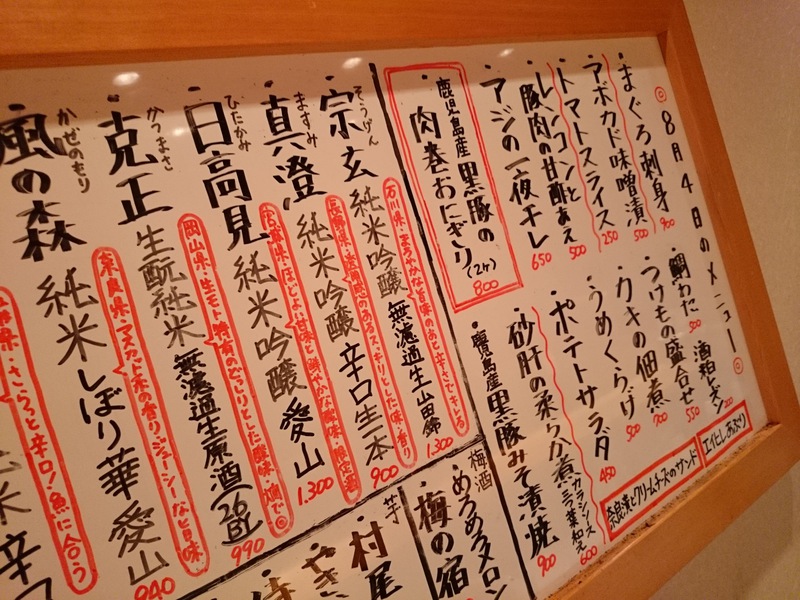 ◎8月4日のメニュー◎
・まぐろ刺身 900
・アボカド味噌漬 500
・トマトスライス 250
・レンコンと
豚肉の甘酢あえ 500
・アジの一夜干し 650
鹿児島産黒豚の
・肉巻おにぎり(2ケ) 800
・鯛わた 500
・つけもの盛合せ 550
・カキの佃煮 700
・うめくらげ 500
・ポテトサラダ 450
・砂肝の柔らか煮 カラシソース 三つ葉和え 600
・鹿児島産黒豚みそ漬焼 900
酒粕レーズン
エイヒレあぶり
奈良漬とクリームチーズのサンド
そうげん
・宗玄 純米吟醸 無濾過生 山田錦 1.300
石川県・まろやかな旨味のあと辛さでキレる
ますみ
・真澄 純米吟醸 辛口生一本 900
ひたかみ
・日高見 純米吟醸 愛山 1.300
かつまさ
・克正 生酛純米 無濾過生原酒 26BY 990
岡山県・生モト特有のどっしりとした酸味・燗で◎
かぜのもり
・風の森 純米しぼり華 愛山 940
奈良県・マスカット系の香り・ジューシーな旨味
さらっと辛口!魚に合う
梅酒
・めろめろメロン
・梅の宿
芋
・村尾